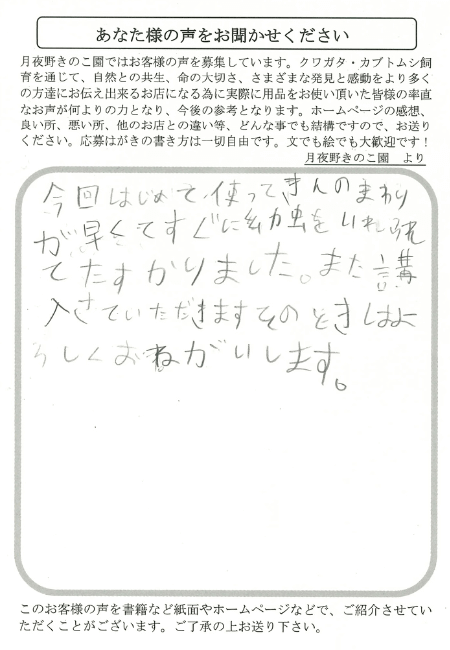 あなた様の声をお聞かせください
月夜野きのこ園ではお客様の声を募集しています。クワガタ・カブトムシ飼
育を通じて、自然との共生、命の大切さ、さまざまな発見と感動をより多く
の方達にお伝え出来るお店になる為に実際に用品をお使い頂いた皆様の率直
なお声が何よりの力となり、今後の参考となります。ホームページの感想、
良い所、悪い所、他のお店との違い等、どんな事でも結構ですので、お送り
ください。応募はがきの書き方は一切自由です。文でも絵でも大歓迎です！
月夜野きのこ園　より
今回はじめて使ってきんのまわり
が早くてすぐに幼虫をいれられ
てたすかりました。また講
入させていただきますそのときはよ
ろしくおねがいします。
このお客様の声を書籍など紙面やホームページなどで、ご紹介させてい
ただくことがございます。ご了承の上お送り下さい。